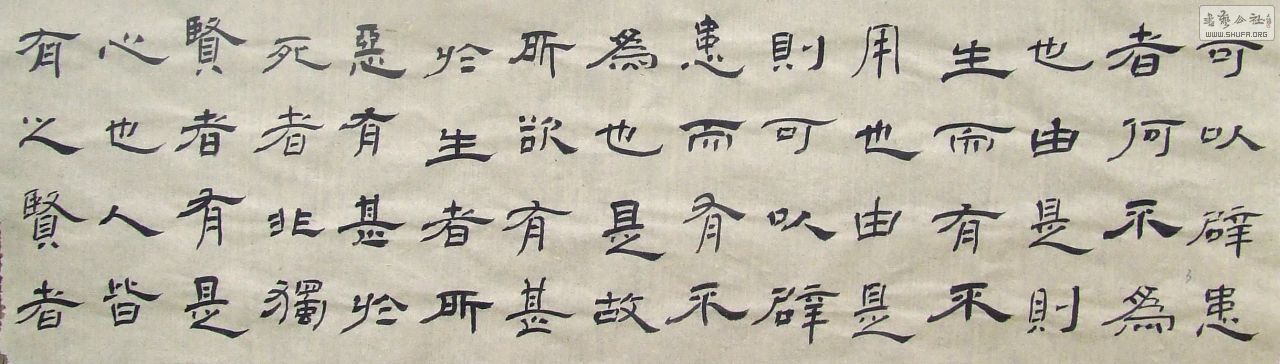 可以辟患
者何不為
也由是則
生而有不
用也由是
則可以辟
患而有不
為也是故
所欲有甚
於生者所
惡有甚於
死者非獨
賢者有是
心也人皆
有之賢者
书艺公社
WWW.SHUFA.ORG